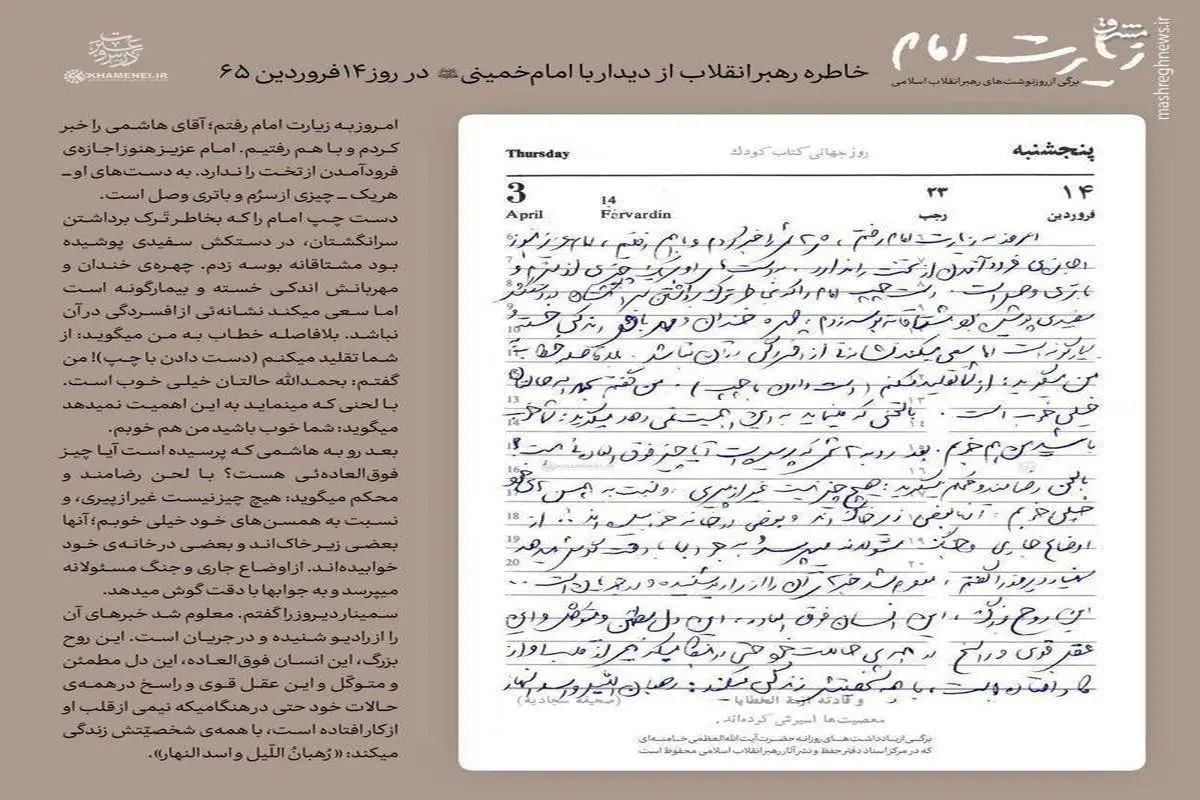 زیارت امام
برگی از روزنوشت‌های رهبر انقلاب اسلامی
مشرق
mashreghnews.ir
خاطره رهبر انقلاب از دیدار با امام خمینی در روز ۱۴ فروردین ۶۵
درس و عبرت
KHAMENEI.IR
امروز به زیارت امام رفتم؛ آقای هاشمی را خبر
کردم و با هم رفتیم. امام عزیز هنوز اجازه‌ی
فرود آمدن از تخت را ندارد. به دست‌های او ـ
هریک ـ چیزی از سرُم و باتری وصل است.
دست چپ امام را که بخاطر تَرک برداشتن
سرانگشتان، در دستکش سفیدی پوشیده
بود مشتاقانه بوسه زدم. چهره‌ی خندان و
مهربانش اندکی خسته و بیمارگونه است
اما سعی میکند نشانه‌ئی از افسردگی در آن
نباشد. بلافاصله خطاب به من میگوید: از
شما تقلید میکنم (دست دادن با چپ)! من
گفتم: بحمدالله حالتان خیلی خوب است.
با لحنی که مینماید به این اهمیت نمیدهد
میگوید: شما خوب باشید من هم خوبم.
بعد رو به هاشمی که پرسیده است آیا چیز
فوق‌العاده‌ئی هست؟ با لحن رضامند و
محکم میگوید: هیچ چیز نیست غیر از پیری، و
نسبت به همسن‌های خود خیلی خوبم؛ آنها
بعضی زیر خاک‌اند و بعضی در خانه‌ی خود
خوابیده‌اند. از اوضاع جاری و جنگ مسئولانه
میپرسد و به جوابها با دقت گوش میدهد.
سمینار دیروز را گفتم. معلوم شد خبرهای آن
را از رادیو شنیده و در جریان است. این روح
بزرگ، این انسان فوق‌العاده، این دل مطمئن
و متوکّل و این عقل قوی و راسخ در همه‌ی
حالات خود حتی در هنگامیکه نیمی از قلب او
از کار افتاده است، با همه‌ی شخصیّتش زندگی
میکند: «رُهبانُ اللّیل و اسد النهار».
پنجشنبه
روز جهانی کتاب کودک
Thursday
۱۴ ۲۳ 14 3
فروردین رجب Farvardin April
امروز به زیارت امام رفتم، هاشمی را خبر کردم و با هم رفتیم. امام عزیز هنوز
اجازه‌ی فرود آمدن از تخت را ندارد. به دست‌های او ـ هریک ـ چیزی از سرم و
باتری وصل است. دست چپ امام را که بخاطر ترک برداشتن سرانگشتان در دستکش
سفیدی پوشیده بود مشتاقانه بوسه زدم. چهره خندان و مهربانش اندکی خسته و
بیمارگونه است اما سعی میکند نشانه‌ئی از افسردگی در آن نباشد. بلافاصله خطاب به
من میگوید: از شما تقلید میکنم (دست دادن با چپ). من گفتم بحمدالله حالتان
خیلی خوب است. با لحنی که مینماید به این اهمیت نمی‌دهد میگوید: شما خوب
باشید من هم خوبم. بعد رو به هاشمی که پرسیده است آیا چیز فوق‌العاده‌ئی هست؟
با لحن رضامند و محکم میگوید: هیچ چیز نیست غیر از پیری، و نسبت به همسن‌های خود
خیلی خوبم. آنها بعضی زیر خاک‌اند و بعضی در خانه خوابیده‌اند. از
اوضاع جاری و جنگ مسئولانه میپرسد و به جوابها با دقت گوش میدهد
سمینار دیروز را گفتم. معلوم شد خبرهای آن را از رادیو شنیده و در جریان است...
این روح بزرگ، این انسان فوق‌العاده، این دل مطمئن و متوکل و این
عقل قوی و راسخ در همه‌ی حالات خود حتی در هنگامیکه نیمی از قلب او از
کار افتاده است، با همه شخصیتش زندگی میکند: رهبان اللیل و اسد النهار
و قادته ازمة الخطایا (صحیفه سجادیه)
معصیت‌ها اسیرش کرده‌اند.
برگی از یادداشت‌های روزانه حضرت آیت‌الله‌العظمی خامنه‌ای
که در مرکز اسناد دفتر حفظ و نشر آثار رهبر انقلاب اسلامی محفوظ است